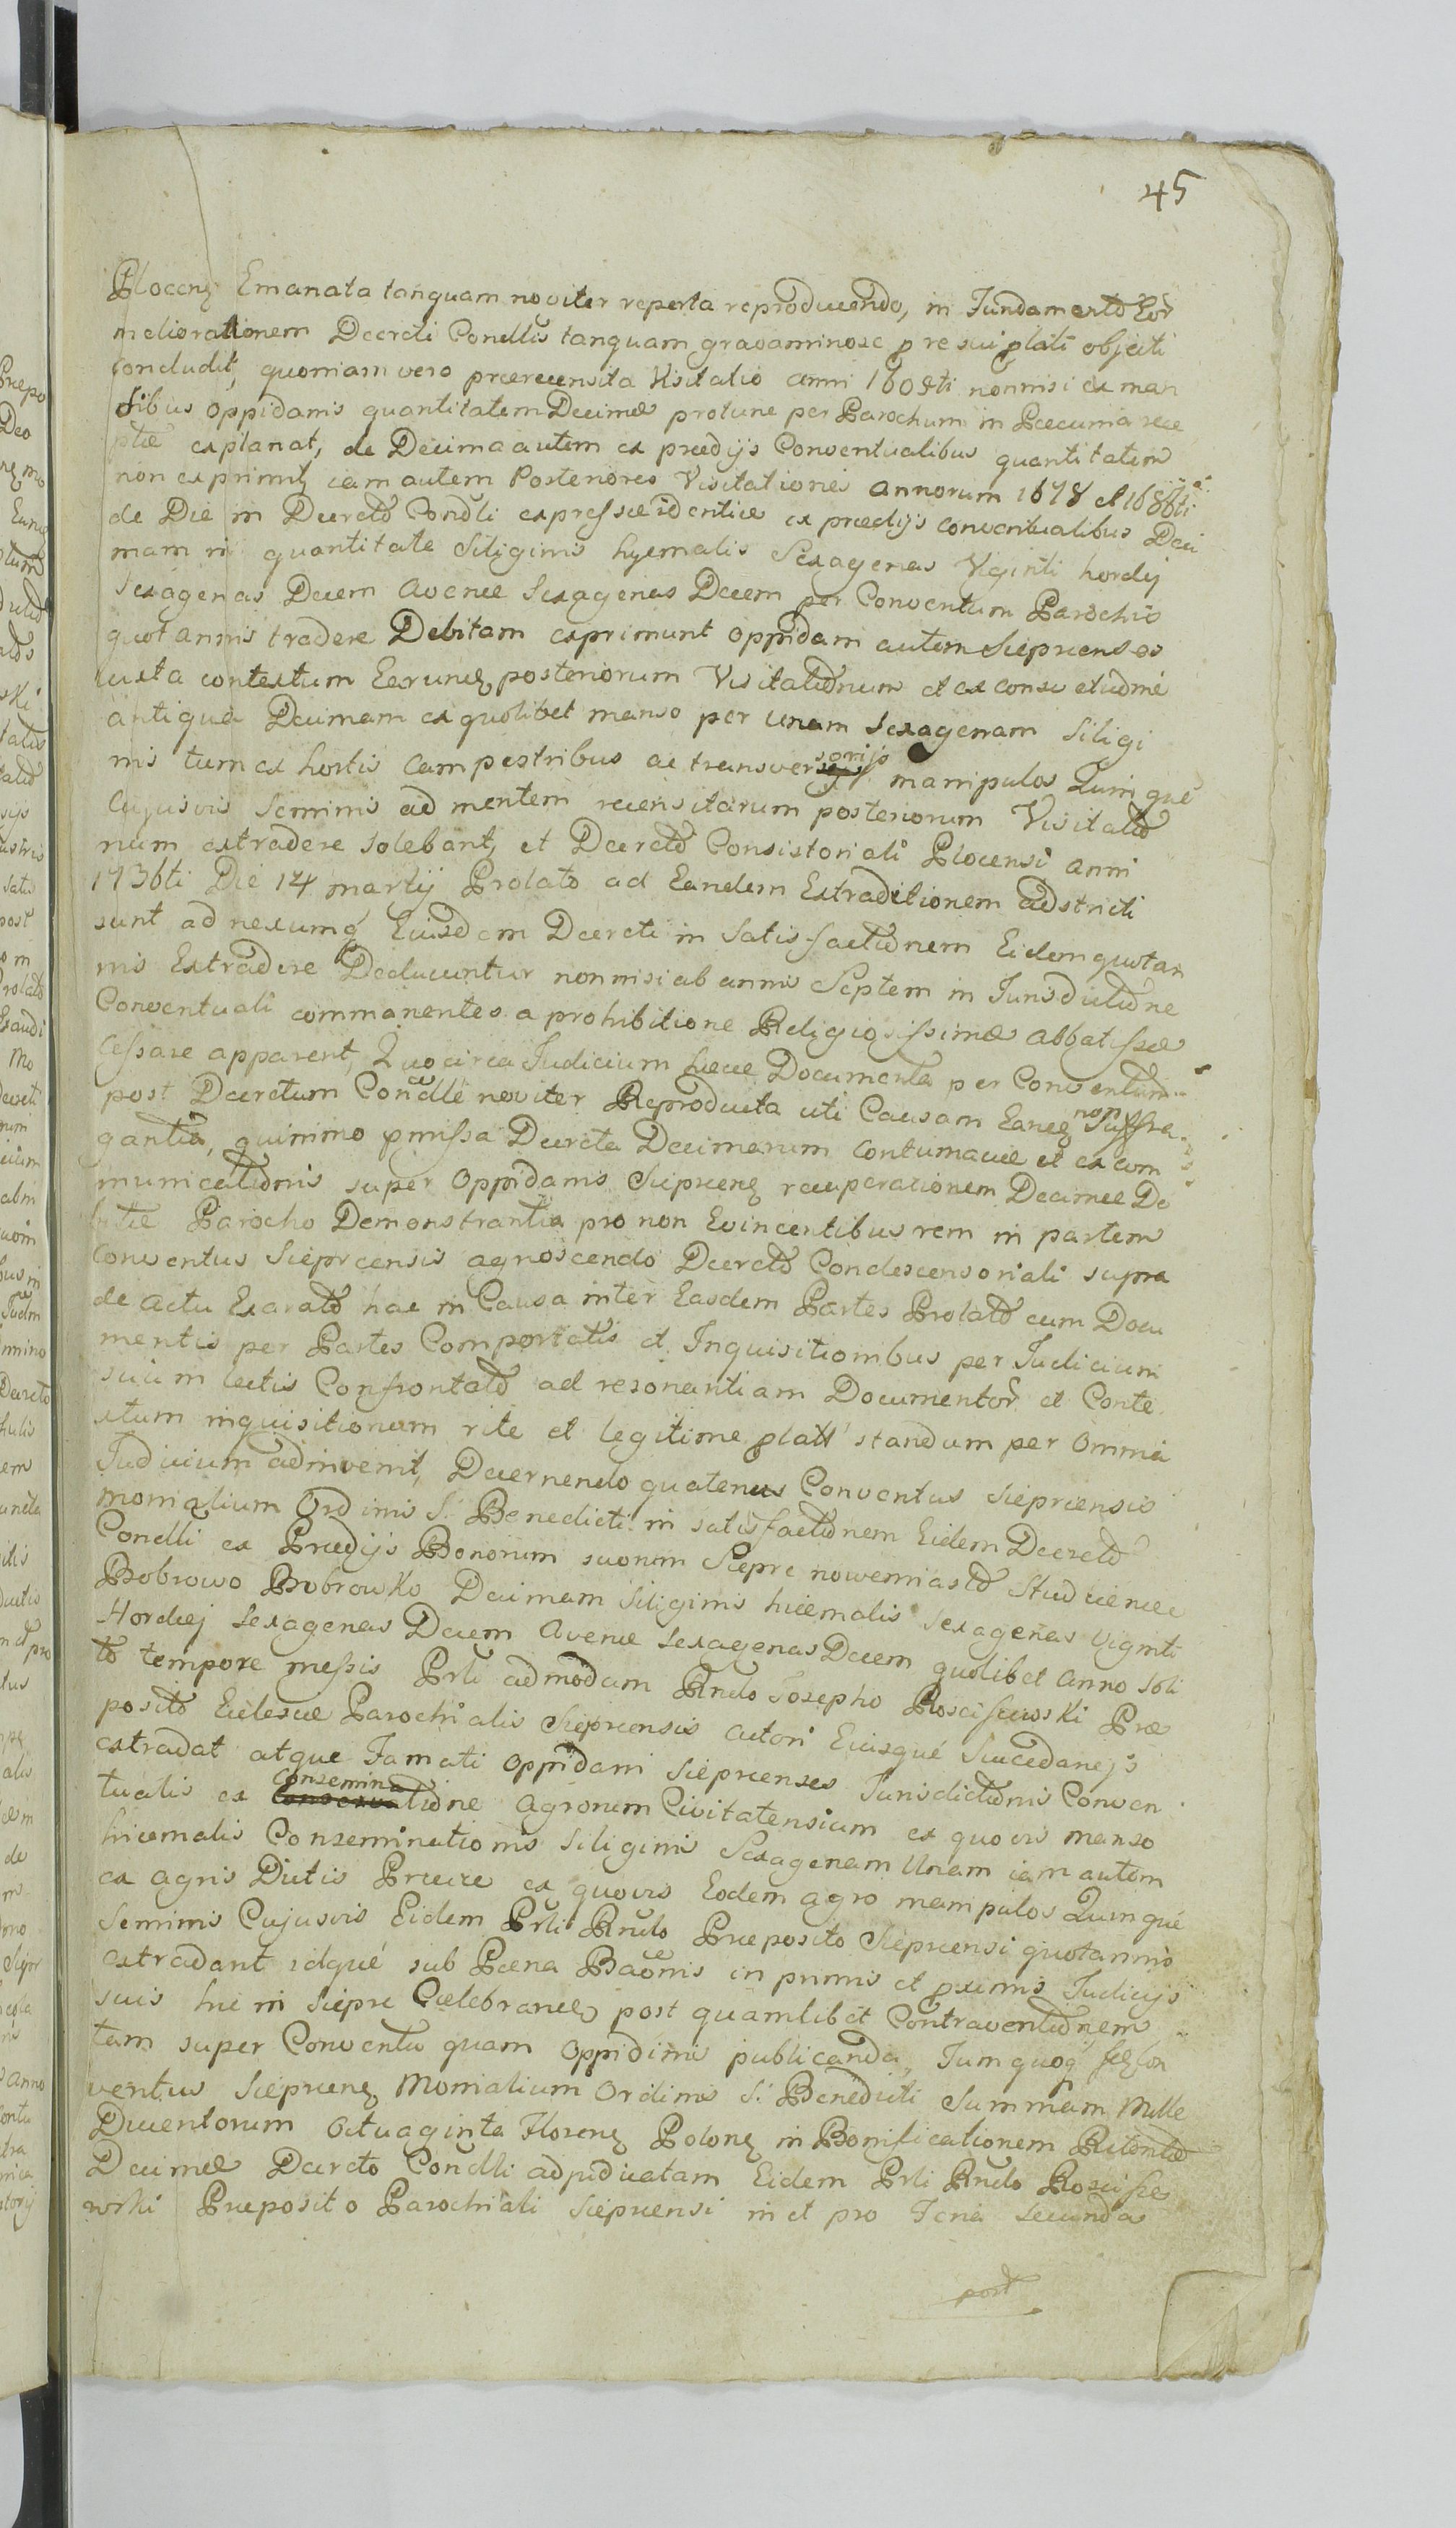 45
Plocenȝ Emanata tanquam noviter reperta reproducendo, in Fundamento Eor
meliorationem Decreti Condllis tanquam gravaminose p re sui plati objecti
concludit, quoniam vero prærecensita Visitatio anni 1609ti nonnisi ex man
sibus oppidanis quantitatem Decimæ protunc per Parochum in Pæcunia rece
ptæ explanat, de Decima autem ex prædijs Conventualibus quantitatem
non exprimit, iam autem Posteriores Visitationes annorum 1678 et 1686ti
de Die in Decreto Condlli expressæ identice ex prædijs conventualibus Deci
mam in quantitate Siliginis hyemalis Sexagenas Viginti hordej
Sexagenas Decem avenæ Sexagenas Decem per Conventum Parocho
quot annis tradere Debitam exprimunt oppidam autem Sieprcenses
iuxta contextum Earuncȝ posteriorum Visitationum et ex consuetudine
antiqua Decimam ex quolibet manso per unam sexagenam Siligi
nis tum ex hortis campestribus ac transversorijs manipulos Quinque
Cujusvis Seminis ad mentem recensitarum posteriorum Visitatio
num extradere solebant, et Decreto Consistoriali Plocensi anni
1736ti Die 14 martij Prolato ad Eandem Extraditionem adstricti
sunt ad nexumq Eiusdem Decreti in Satisfactionem Eidem quotan
nis Extradere Deducuntur nonnisi ab annis Septem in Jurisdictione
Conventuali commanentes a prohibitione Religiosissimæ abbatissæ
Cessare apparent, Quocirca Judicium hæcce Documenta per Conventum
post Decretum Condlle noviter Reproducta uti Causam Eancȝ non Suffra
gantia, quinimo pmissa Decreta Decimarum contumaciæ et excom
municationis super oppidanis Sieprcenȝ recuperationem Decimæ De
bitæ Parocho Demonstrantia pro non Evincentibus rem in partem
Conventus Sieprcensis agnoscendo Decreto Condescensoriali supra
de actu Exarato hac in Causa inter Easdem Partes Prolato cum Docu
mentis per Partes Comportatis et Inquisitionibus per Judicium
suum lectis Confrontato ad resonantiam Documentor et Conte
xtum inquisitionum rite et legitime plato standum per omnia
Judicium adinvenit, Decernendo quatenus Conventus Sieprcensis
Monialium Ordinis S. Benedicti in satisfactionem Eidem Decreto
Condlli ex Prædijs Bonorum suorum Sieprc nowemiasto Studzieniec
Bobrowo Bobrowko Decimam Siliginis hiemalis sexagenas viginti
Hordej sexagenas Decem avenæ sexagenas Decem quolibet anno soli
to tempore messis Prli admodum Rndo Josepho Rosciszewski Præ
posito Ecclesiæ Parochialis Sieprcensis actori Eiusque Succedanejs
extradat atque Famati oppidani Sieprcenses Jurisdictionis Conven
tualis ex Conseminatione agrorum Civitatensium ex quovis manso
hiemalis Conseminationis Siliginis Sexagenam Unam iam autem
ex agris Dictis Præcze ex quovis Eodem agro manipulos Quinque
Seminis Cujusvis Eidem Prli Rndo Præposito Sieprcensi quotannis
extradant idque sub Pæna Baonis in primis et pximis Judicijs
suis hic in Sieprc Cælebrancȝ post quamlibet Contraventionem
tam super Conventu quam Oppidinis publicanda, Tumquoq
ventus Sieprcenȝ Monialium Ordinis S. Benedicti Summam Mille
Ducentorum Octuaginta Florenȝ Polonȝ in Bonificationem Retentæ
Decimæ Decreto Condlli adjudicatam Eidem Prli Rndo Roscisze
wski Præposito Parochiali Sieprcensi in et pro Feria Secunda
post